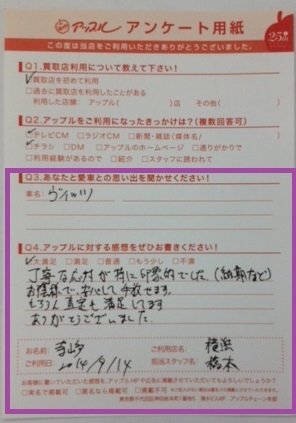 アップル アンケート用紙
25th
この度は当店をご利用いただきありがとうございました。
Q1.買取店利用について教えて下さい!
□買取店を初めて利用
□過去に買取店を利用したことがある
利用した店舗: アップル( )店 その他( )
Q2.アップルをご利用になったきっかけは?(複数回答可)
□テレビCM □ラジオCM □新聞・雑誌(媒体名/ )
□チラシ □DM □アップルのホームページ □通りがかりで
□利用経験があるので □紹介 □スタッフに誘われて
Q3.あなたと愛車との思い出を聞かせください!
車名: ヴィッツ
Q4.アップルに対する感想をぜひお書きください!
□大満足 □満足 □普通 □もう少し □不満
丁寧な応対が特に印象的でした(納期など)
お陰様で、安心して手放せます。
もちろん査定も満足してます
ありがとうございました。
お名前:
ご利用店名: 横浜
ご利用日: 2014/9/14
担当スタッフ名: 橋本
お客様に書いていただいた感想を、アップルHPや広告に掲載させていただいてもよろしいでしょうか?
□実名で掲載可 □匿名なら掲載可 □掲載不可